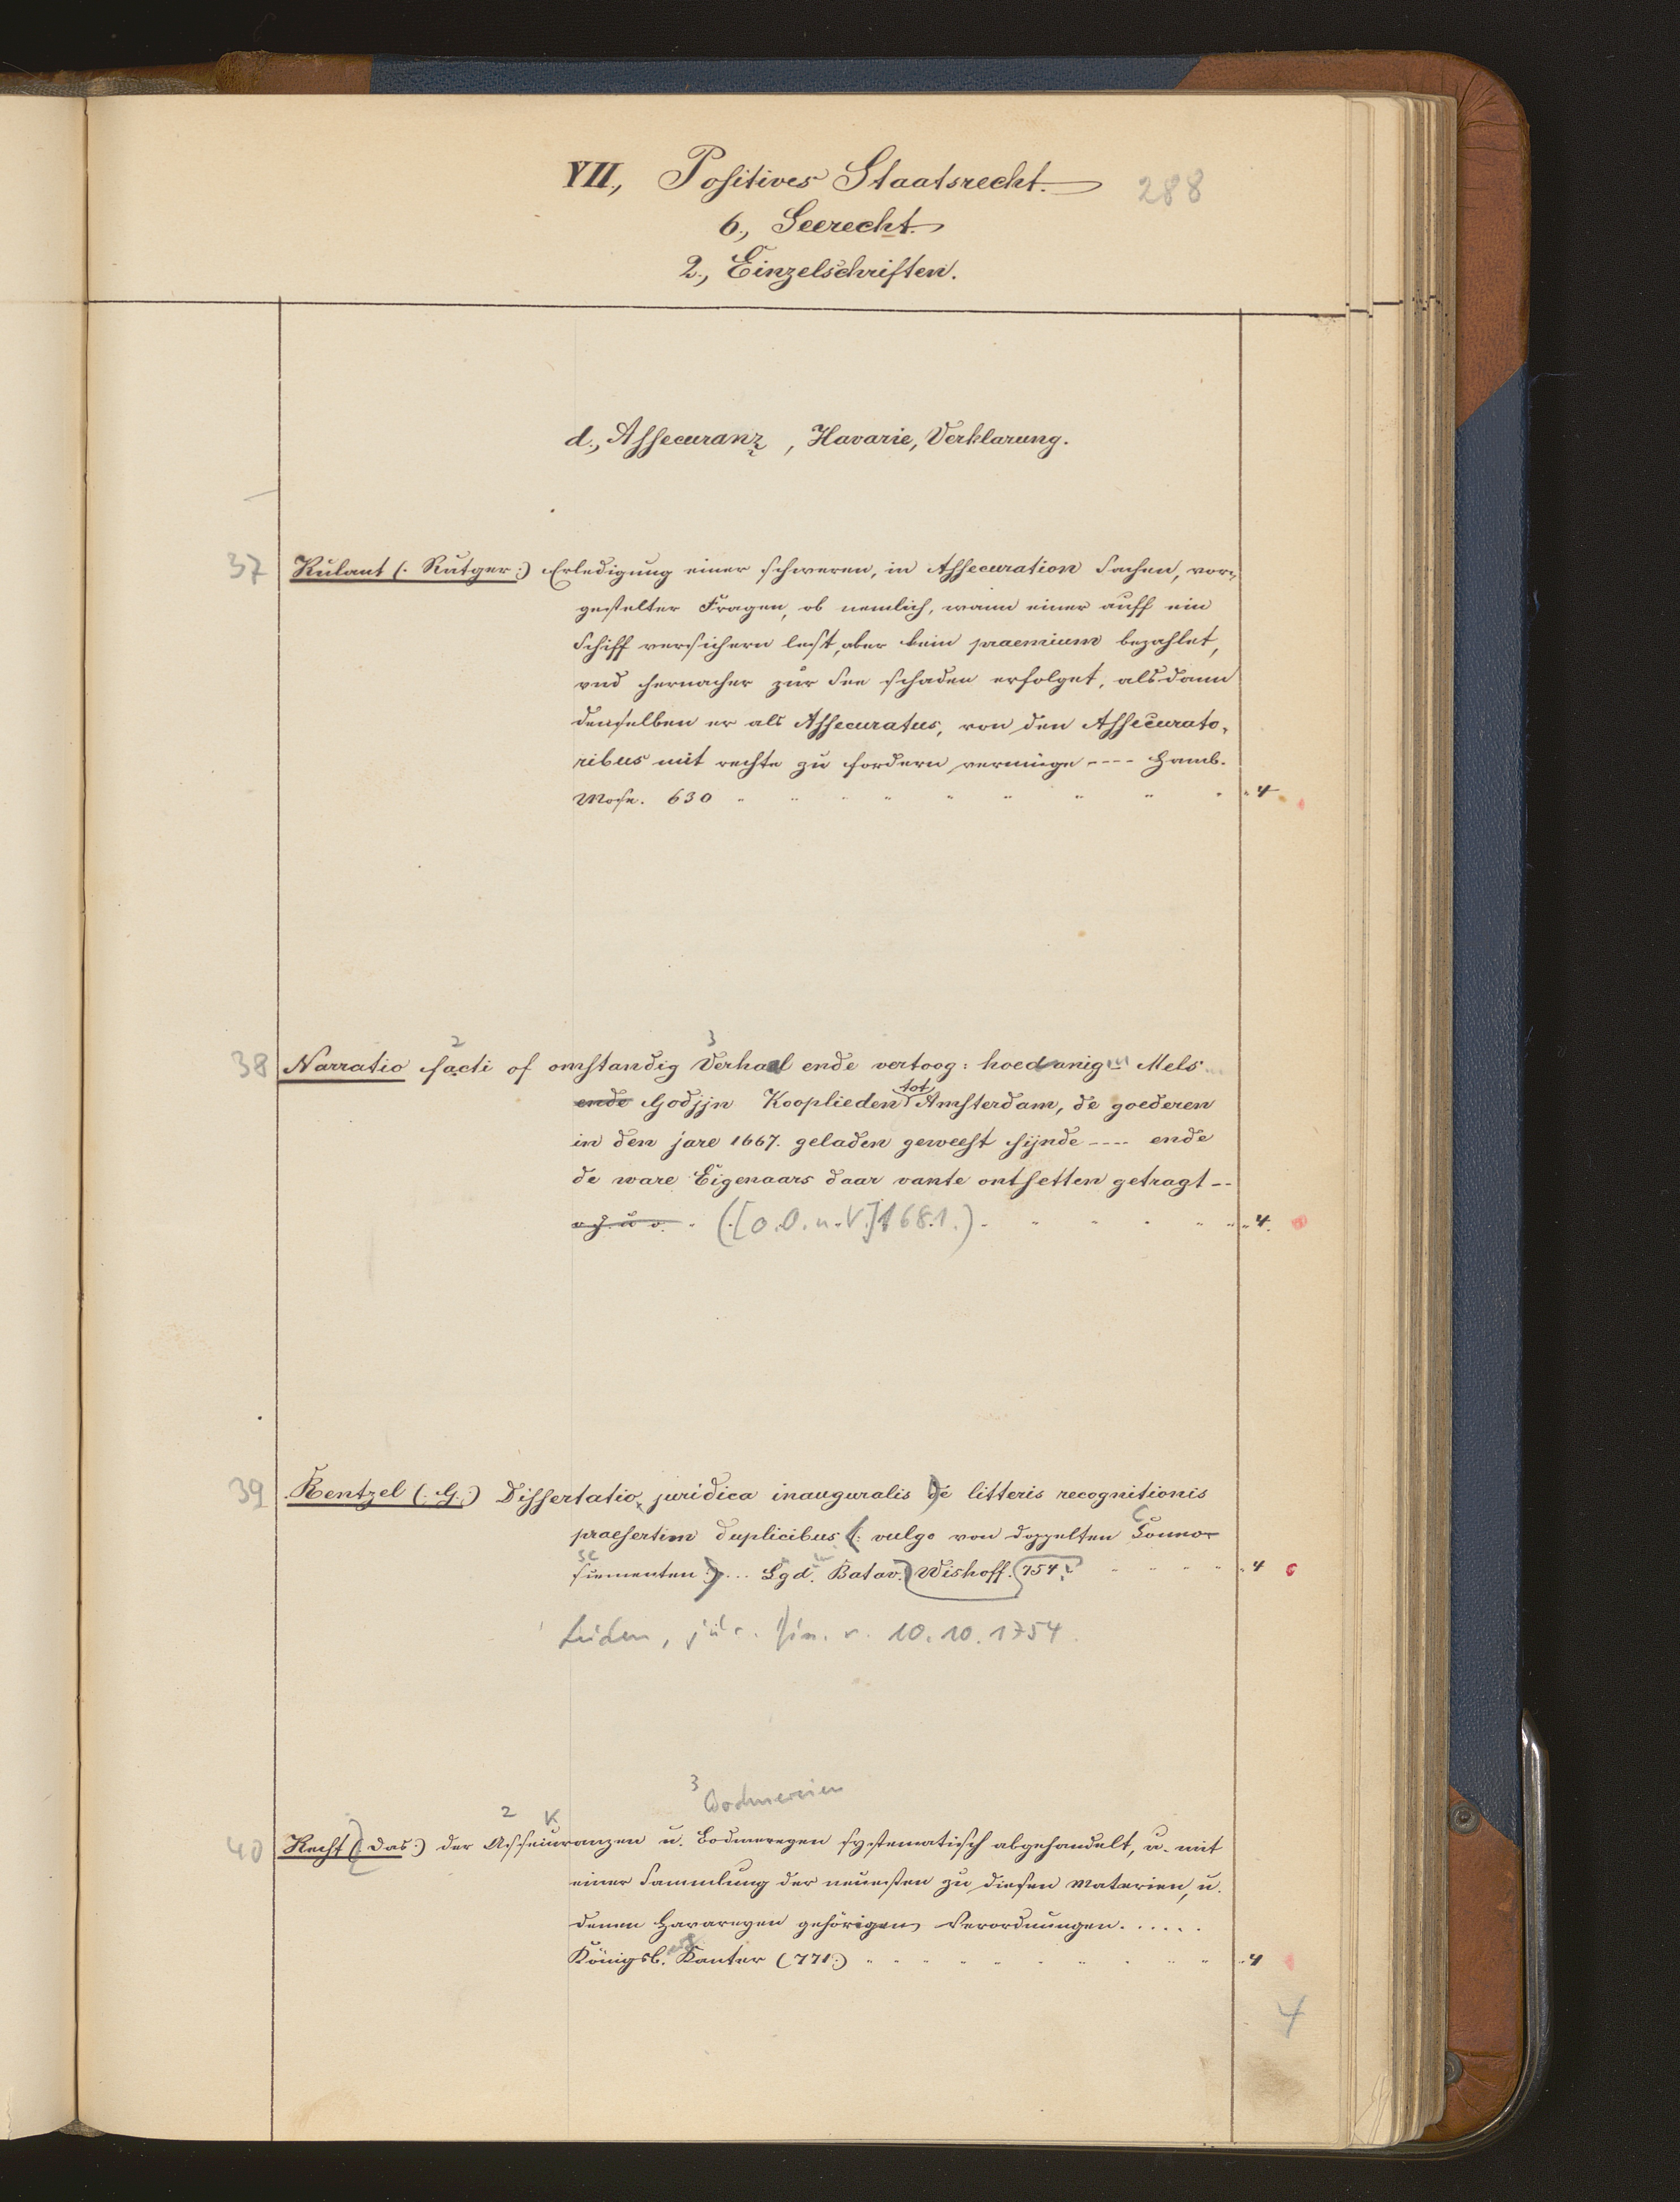 VII., Positives Staatsrecht. 288
6., Seerecht.
2., Einzelschriften.
d., Assecuranz, Havarie, Verklarung.
37 Rulant (: Rütger:) Erledigung einer schweren, in Assecuration Sachen, vor-
gestelter Fragen, ob nemlich, wann einer auff ein
Schiff versichern lest, aber kein praemium bezahlet,
vnd hernacher zur See schaden erfolget, alsdann
denselben er als Assecuratus, von den Assecurato-
ribus mit rechte zu fordern vermüge ---- Hamb.
Mose. 630 " 4
38 Narratio facti of omstandig Verhaal ende vertoog: hoedanig Mels
2 3
ende Godijn Kooplieden tot Amsterdam, de goederen
in den jare 1667. geladen geweest sijnde ---- ende
de ware Eigenaars daar vante ontsetten getragt --
([o.O.u.V.] 1681.) " 4.
39 Rentzel (: G.:) Dissertatio juridica inauguralis de litteris recognitionis
praesertim duplicibus (: vulgo von doppelten Connos-
sementen:) ... Lgd. Batav. Wishoff. 754. " 4
Leiden, jur. Diss. v. 10.10.1754
3 Bodmereien
2 K
40 Recht (: das:) der Asseiuranzen u. Bodmereyen systematisch abgehandelt, u. mit
einer Sammlung der neuesten zu diesen Materien, u.
denen Havareyen gehörigen Verordnungen......
Königsb. Kanter (771:) " 4
4